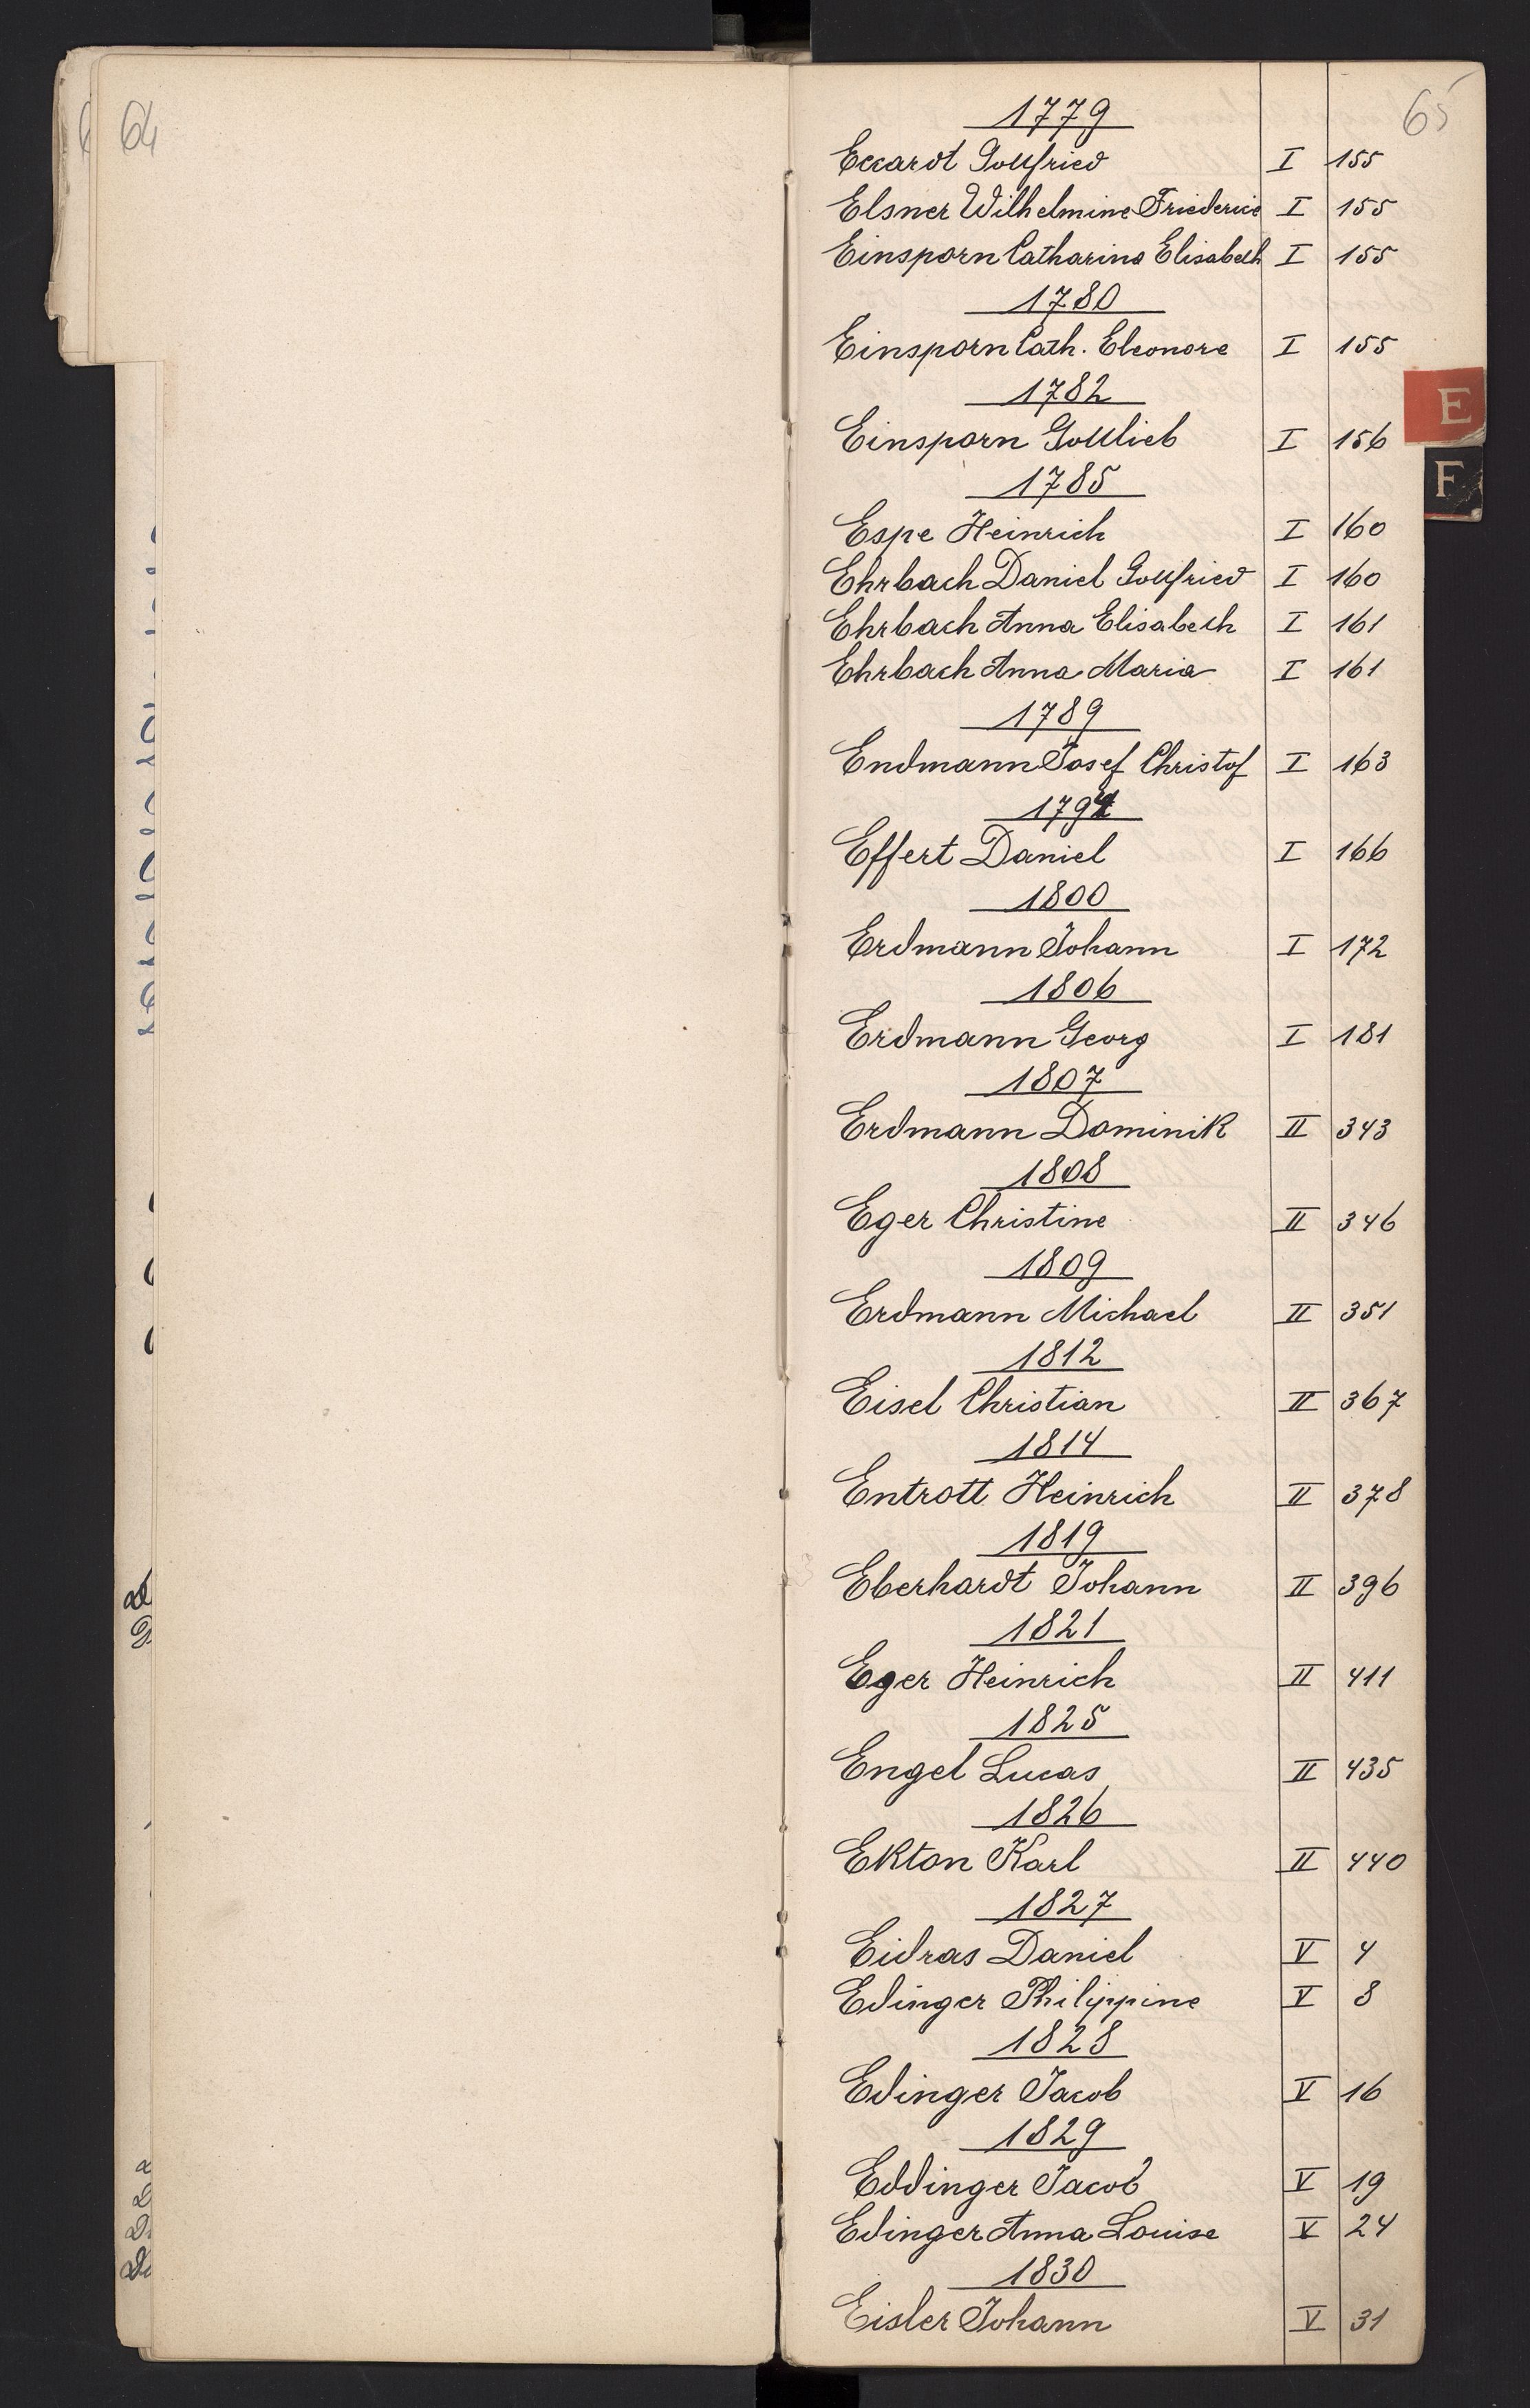 64
65
1779
Eccardt Gottfried I 155
Elsner Wilhelmine Friederice I 155
Einsporn Catharina Elisabeth I 155
1780
Einsporn Cath. Eleonore I 155
1782
E
Einsporn Gottlieb I 156
F
1785
Espe Heinrich I 160
Ehrbach Daniel Gottfried I 160
Ehrbach Anna Elisabeth I 161
Ehrbach Anna Maria I 161
1789
Endmann Josef Christof I 163
1794
Effert Daniel I 166
1800
Erdmann Johann I 172
1806
Erdmann Georg I 181
1807
Erdmann Dominik II 343
1808
Eger Christine II 346
1809
Erdmann Michael II 351
1812
Eisel Christian II 367
1814
Entrott Heinrich II 378
1819
Eberhardt Johann II 396
1821
Eger Heinrich II 411
1825
Engel Lucas II 435
1826
Ekton Karl II 440
1827
Eidras Daniel V 4
Edinger Philippine V 8
1828
Edinger Jacob V 16
1829
Eddinger Jacob V 19
Edinger Anna Louise V 24
1830
Eisler Johann V 31